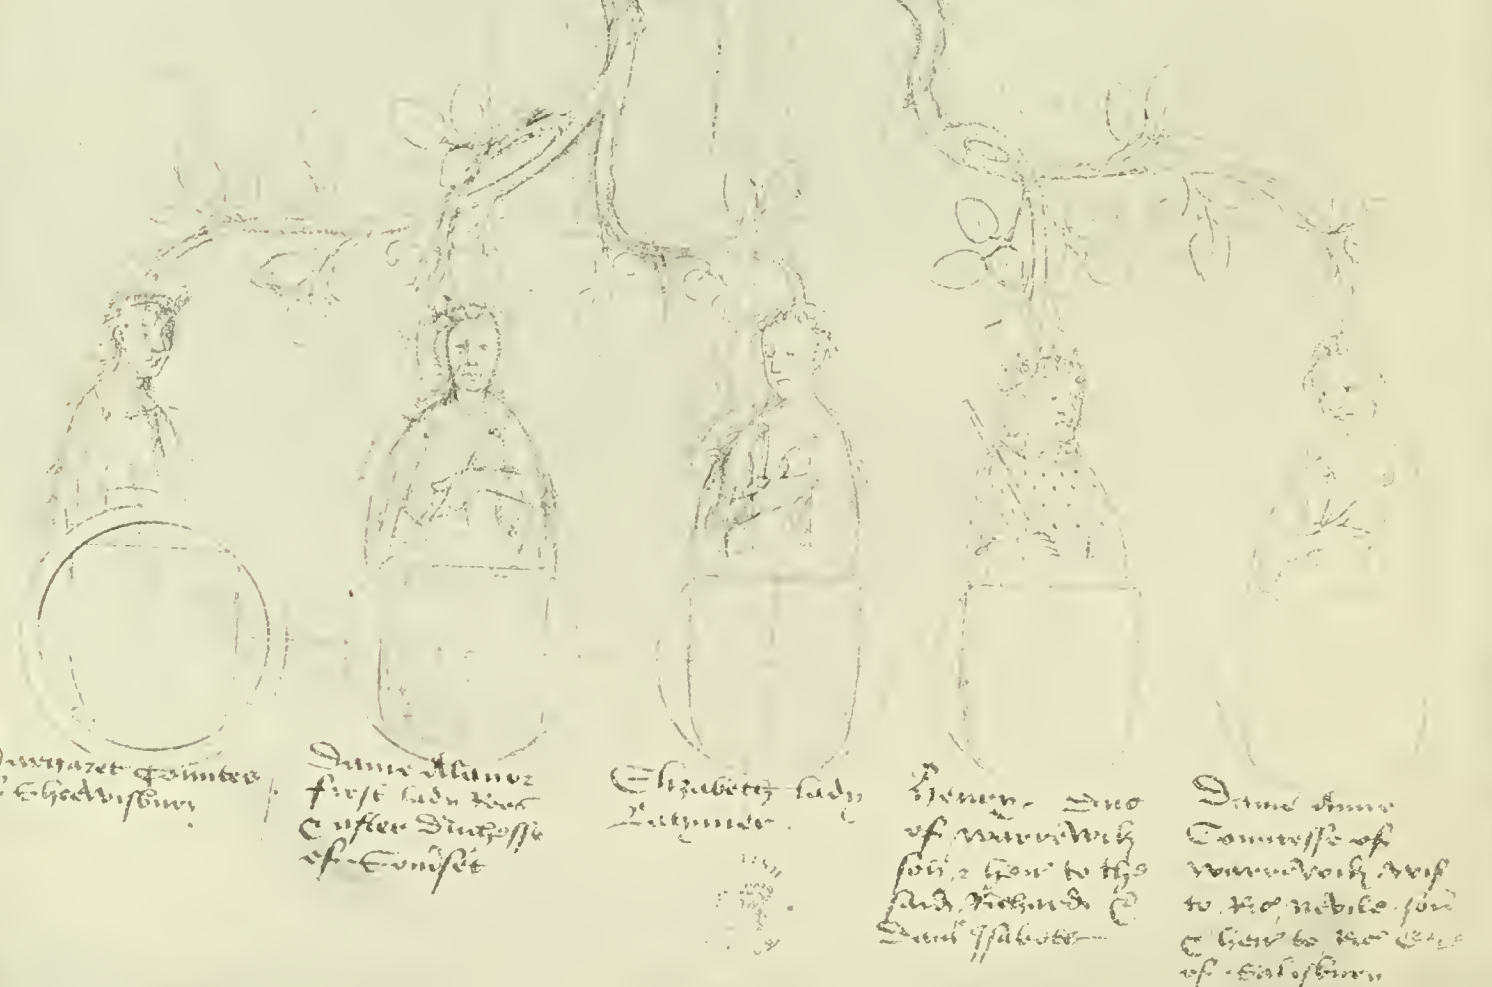 Margaret Countes
of Shrewisbury
Dame Alanor
first lady Roos
& after Duchesse
of Somset
Elizabeth lady
Latymer
Henry Duc
of Warrewik
son & heir to the
said Richard &
Dam Issabell
Dame Anne
Countesse of
Warrewik wif
to Ric Nevile son
& heir to Ric Erle
of Salisbury